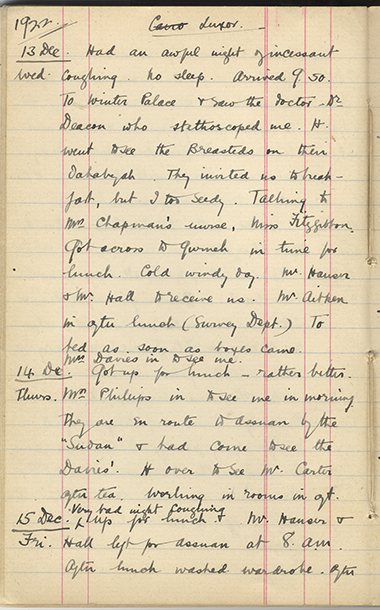 1922 Cairo Luxor.
13 Dec. Had an awful night of incessant
Wed. coughing. No sleep. Arrived 9.50.
To Winter Palace & saw the doctor - Dr
Deacon who stethoscoped me. H.
went to see the Breasteds on their
Dahabeyah. They invited us to break-
fast, but I too seedy. Talking to
Mrs Chapman's nurse, Miss Fitzgibbon.
Got across to Qurneh in time for
lunch. Cold windy day. Mr. Hauser
& Mr. Hall to receive us. Mr. Aitken
in after lunch (Survey Dept.) To
bed as soon as boxes came.
Mrs. Davies in to see me.
14 Dec. Got up for lunch - rather better.
Thurs. Mrs Phillips in to see me in morning
They are en route to Assuan by the
"Sudan" & had come to see the
Davies'. H over to see Mr. Carter
after tea. Working in rooms in aft.
Very bad night coughing
15 Dec. Up for lunch & Mr. Hauser &
Fri. Hall left for Assuan at 8 am.
After lunch washed wardrobe. After